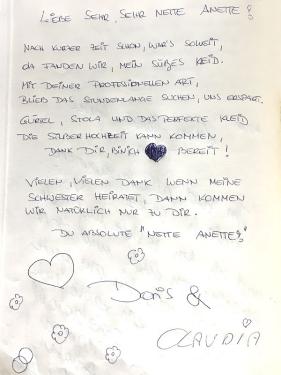 LIEBE SEHR, SEHR NETTE ANETTE!
NACH KURZER ZEIT SCHON, WAR'S SOWEIT,
DA FANDEN WIR, MEIN SÜßES KLEID.
MIT DEINER PROFESSIONELLEN ART,
BLIEB DAS STUNDENLANGE SUCHEN, UNS ERSPART.
GÜRTEL, STOLA UND DAS PERFEKTE KLEID
DIE SILBERHOCHZEIT KANN KOMMEN,
DANK DIR, BIN ICH BEREIT!
VIELEN, VIELEN DANK WENN MEINE
SCHWESTER HEIRATET, DANN KOMMEN
WIR NATÜRLICH NUR ZU DIR.
DU ABSOLUTE "NETTE ANETTE!"
Doris &
CLAUDIA